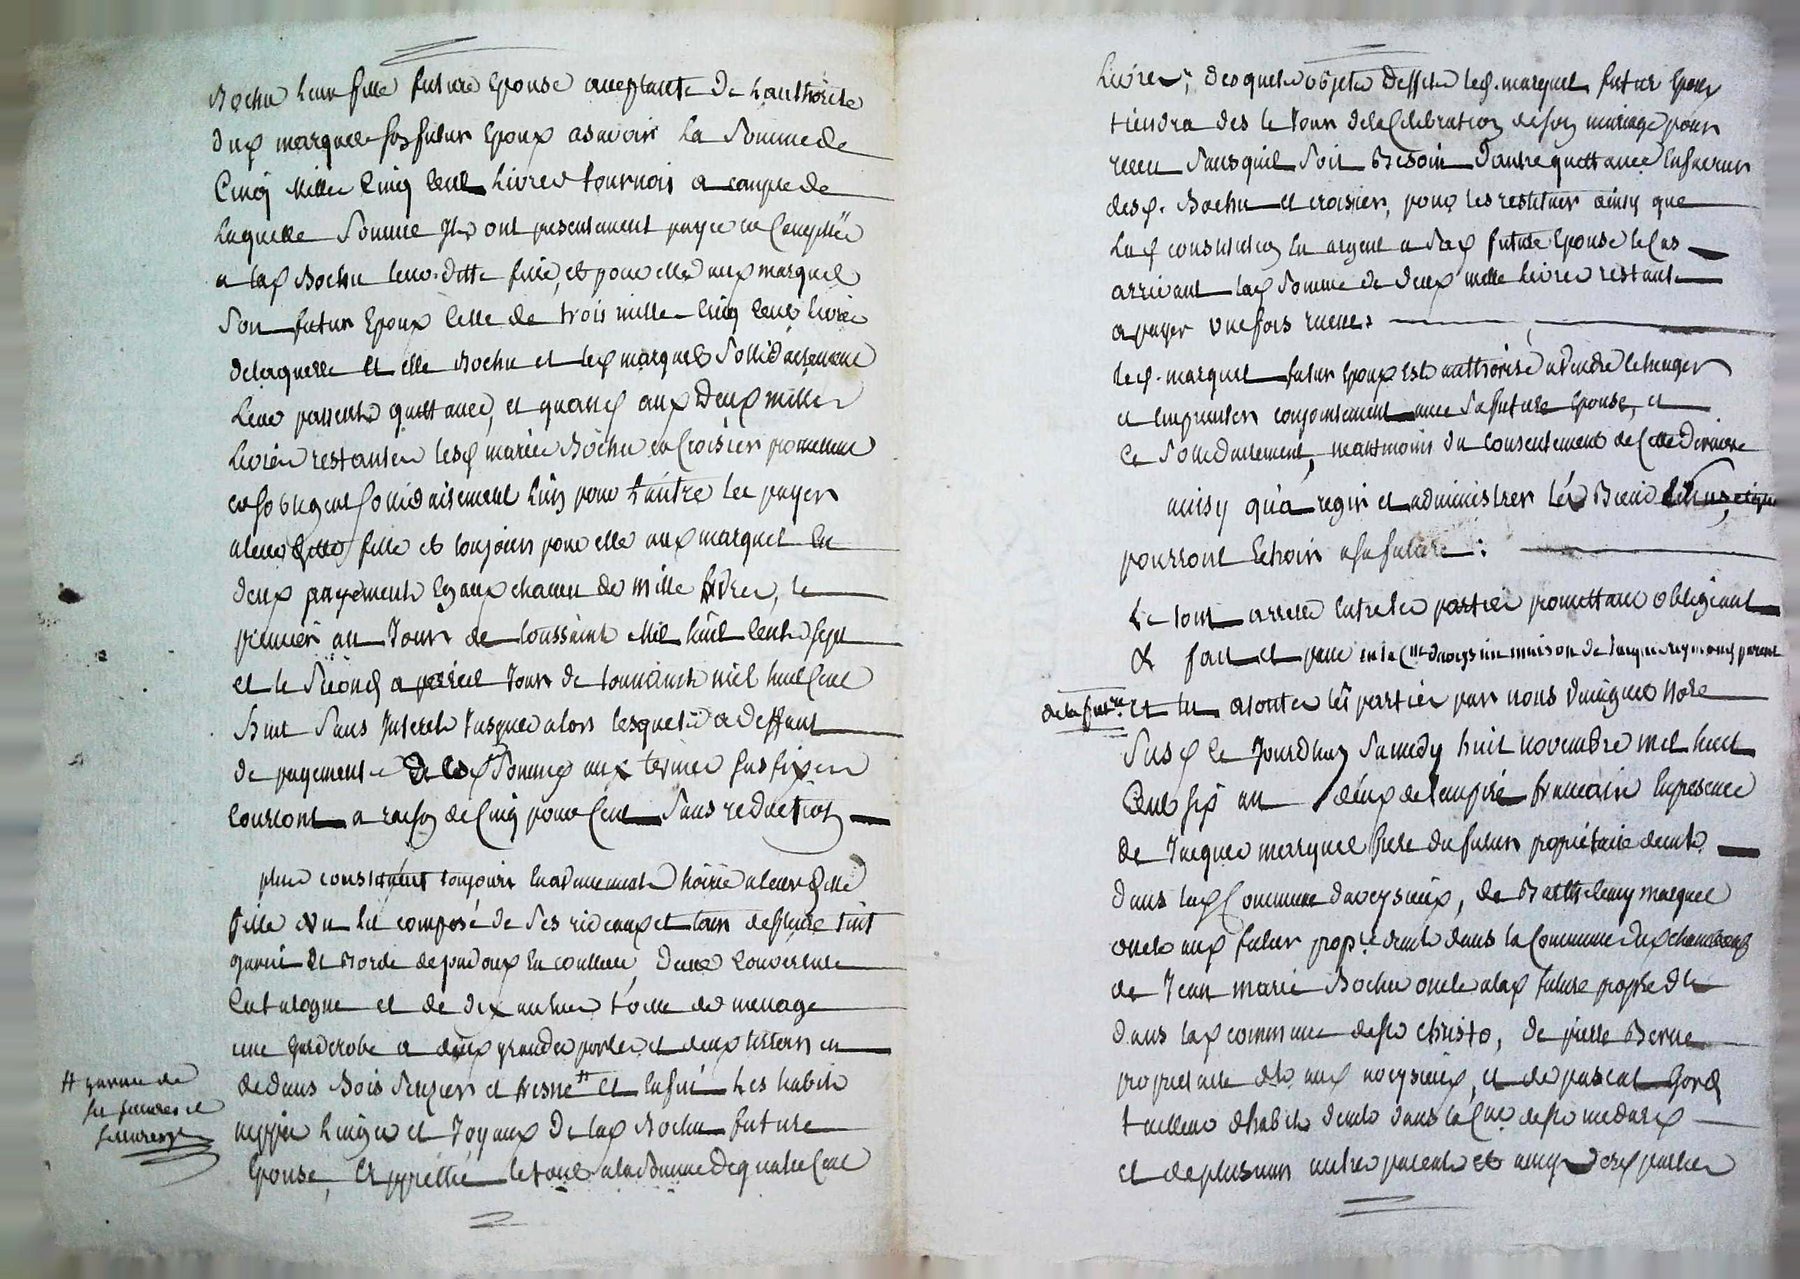 Bochu leur fille future Epouse acceptante De Lauthorité
dud marquet son futur Epoux asavoir La Somme de
Cinq Mille Cinq Cent Livres tournois a compte de
Laquelle Somme Ils ont presentement payée
a lad Bochu leurditte fille, et pour elle aud marquet
Son futur Epoux Celle de trois mille Cinq Cent livres
delaquelle et elle Bochu et led marquet Sollidairement
Leur passent quittance, et quand aux Deux mille
Livres restantes lesd mariés Bochu et Croisier promettent
et sobligent Sollidairement Lun pour Lautre les payer
aleur ditte fille et toujours pour elle aud marquet En
deux payements Egaux chacun de Mille livres, le
premier au Jour de toussaint Mil huit Cent Sept
et le Second a pareil Jour de toussaint mil huit Cent
huit Sans Interets Jusques alors lesquels a deffaut
de payements De lad Somme aux termes sus fixes
Courront a raison de Cinq pour Cent Sans reduction
plus constituent toujours En avancement de hoirie a leur ditte
fille Un lit composé de Ses rideaux et tour de
garni et Bordé de padoux En couleur, D'une Couverture
Catalogne et de dix aunes toille de menage
une garderobe a deux grandes portes et deux tiroirs en
dedans Bois Serizier et fresne # et Enfin Les habits
nippes Linges et Joyaux De lad Bochu future
Epouse, Appretiés le tout a la Somme De quatre Cent
# garnie de
sa ferrures et
serrures
Livres; desquels objets Effets led. marquet futur Epoux
tiendra dès le Jour de la Celebration de son mariage pour
recu Sans quil Soit Besoin D'autre quittance En faveur
desd. Bochu et croisier, pour les restituer ainsy que
Lad constitution En argent a Sad future Epouse le Cas
arrivant lad Somme de deux mille Livres restante
a payer une fois recue.
led. marquet futur Epoux Est authorisé a vendre Echanger
et Emprunter conjointement avec Sa future Epouse, et
Ce Sollidairement, neantmoins du consentement de Cette Derniere
ainsy qu'a regir et administrer Les Biens
pourront Echoir a sa future :
Le tout arreté Entre les parties promettant obligeant
& fait et passé en la Cne daveysieux maison de Jacques reymond parent
de la future et lu a toutes les parties par nous Daingues Nore
Susd Ce Jourdhuy Samedy huit novembre mil huit
Cent Six an deux de lempire francais En presence
de Jacques marquet frere du futur propriétaire demt.
Dans lad Commune daveysieux, de Barthelemy marquet
oncle aud futur propre demt. dans la Commune dud chambœuf
de Jean marie Bochu oncle a lad future propre Dt
dans lad commune de St Christo, de pierre Berne
proprietaire dt. aud aveysieux, et de pascal Gord
tailleur dhabits demt. dans la Cne de St medard
et de plusieurs autres parents et amys desd parties